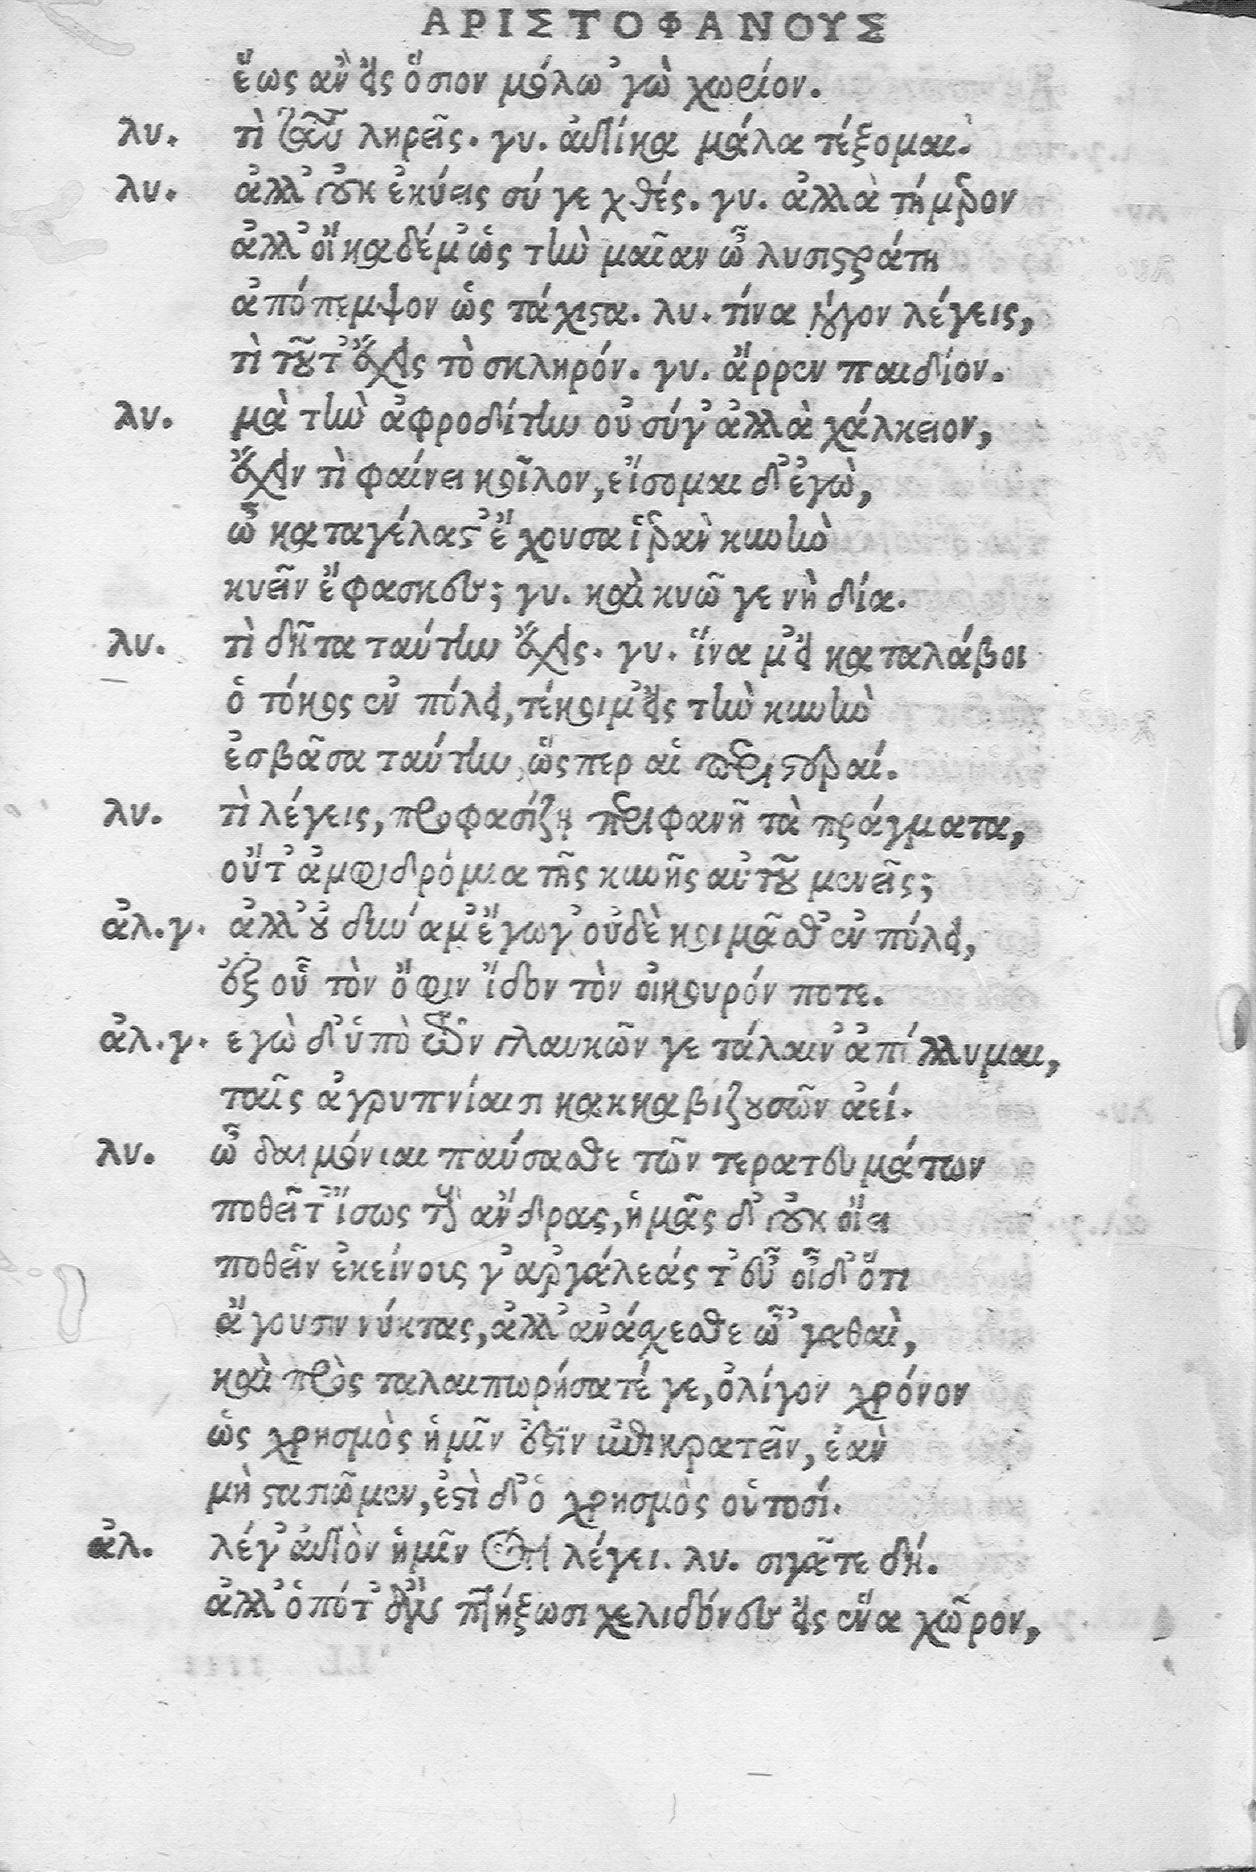 ΑΡΙΣΤΟΦΑΝΟΥΣ
ἕως ἂν εἰς ὅσιον μόλω 'γὼ χωρίον.
λυ. τὶ ταῦτα ληρεῖς. γυ. αὐτίκα μάλα τέξομαι.
λυ. ἀλλ' οὐκ ἐκύεις σύ γε χθές. γυ. ἀλλὰ τήμερον
ἀλλ' οἴκαδέ μ' ὡς τὴν μαῖαν ὦ λυσιστράτη
ἀπόπεμψον ὡς τάχιστα. λυ. τίνα λόγον λέγεις,
τὶ τοῦτ' ἔχεις τὸ σκληρόν. γυ. ἄρρεν παιδίον.
λυ. μὰ τὴν ἀφροδίτην οὐ σύ γ' ἀλλὰ χάλκειον,
ἔχειν τὶ φαίνει κοῖλον, εἴσομαι δ' ἐγὼ,
ὦ καταγέλαστ' ἔχουσα ἱερὰν κυνῆν
κυεῖν ἔφασκες; γυ. καὶ κυῶ γε νὴ δία.
λυ. τὶ δῆτα ταύτην ἔχεις. γυ. ἵνα μ' εἰ καταλάβοι
ὁ τόκος ἐν πόλει, τέκοιμ' εἰς τὴν κυνῆν
ἐσβᾶσα ταύτην, ὥσπερ αἱ περιστεραί.
λυ. τὶ λέγεις, προφασίζῃ περιφανῆ τὰ πράγματα,
οὔτ' ἀμφιδρόμια τῆς κυνῆς αὐτοῦ μενεῖς;
ἀλ.γ. ἀλλ' οὐ δύναμ' ἔγωγ' οὐδὲ κοιμᾶσθ' ἐν πόλει,
ἐξ οὗ τὸν ὄφιν ἴδον τὸν οἰκουρόν ποτε.
ἀλ.γ. εγὼ δ' ὑπὸ τῶν γλαυκῶν γε τάλαιν' ἀπόλλυμαι,
ταῖς ἀγρυπνίαισι κακκαβιζουσῶν ἀεί.
λυ. ὦ δαιμόνιαι παύσασθε τῶν τερατευμάτων
ποθεῖτ' ἴσως τοὺς ἄνδρας, ἡμᾶς δ' οὐκ οἴει
ποθεῖν ἐκείνους γ' ἀργάλεάς τ' εὖ οἶδ' ὅτι
ἄγουσιν νύκτας, ἀλλ' ἀνάσχεσθε ὦ 'γαθαὶ,
καὶ προς ταλαιπωρήσατέ γε, ὀλίγον χρόνον
ὡς χρησμὸς ἡμῖν ἐστὶν ἐπικρατεῖν, ἐὰν
μὴ στασιῶμεν, ἐστὶ δ' ὁ χρησμὸς οὑτοσί.
ἀλ. λέγ' αὐτὸν ἡμῖν ὅτι λέγει. λυ. σιγᾶτε δή.
ἀλλ' ὁπότ' ἂν πτήξωσι χελιδόνες εἰς ἕνα χῶρον,